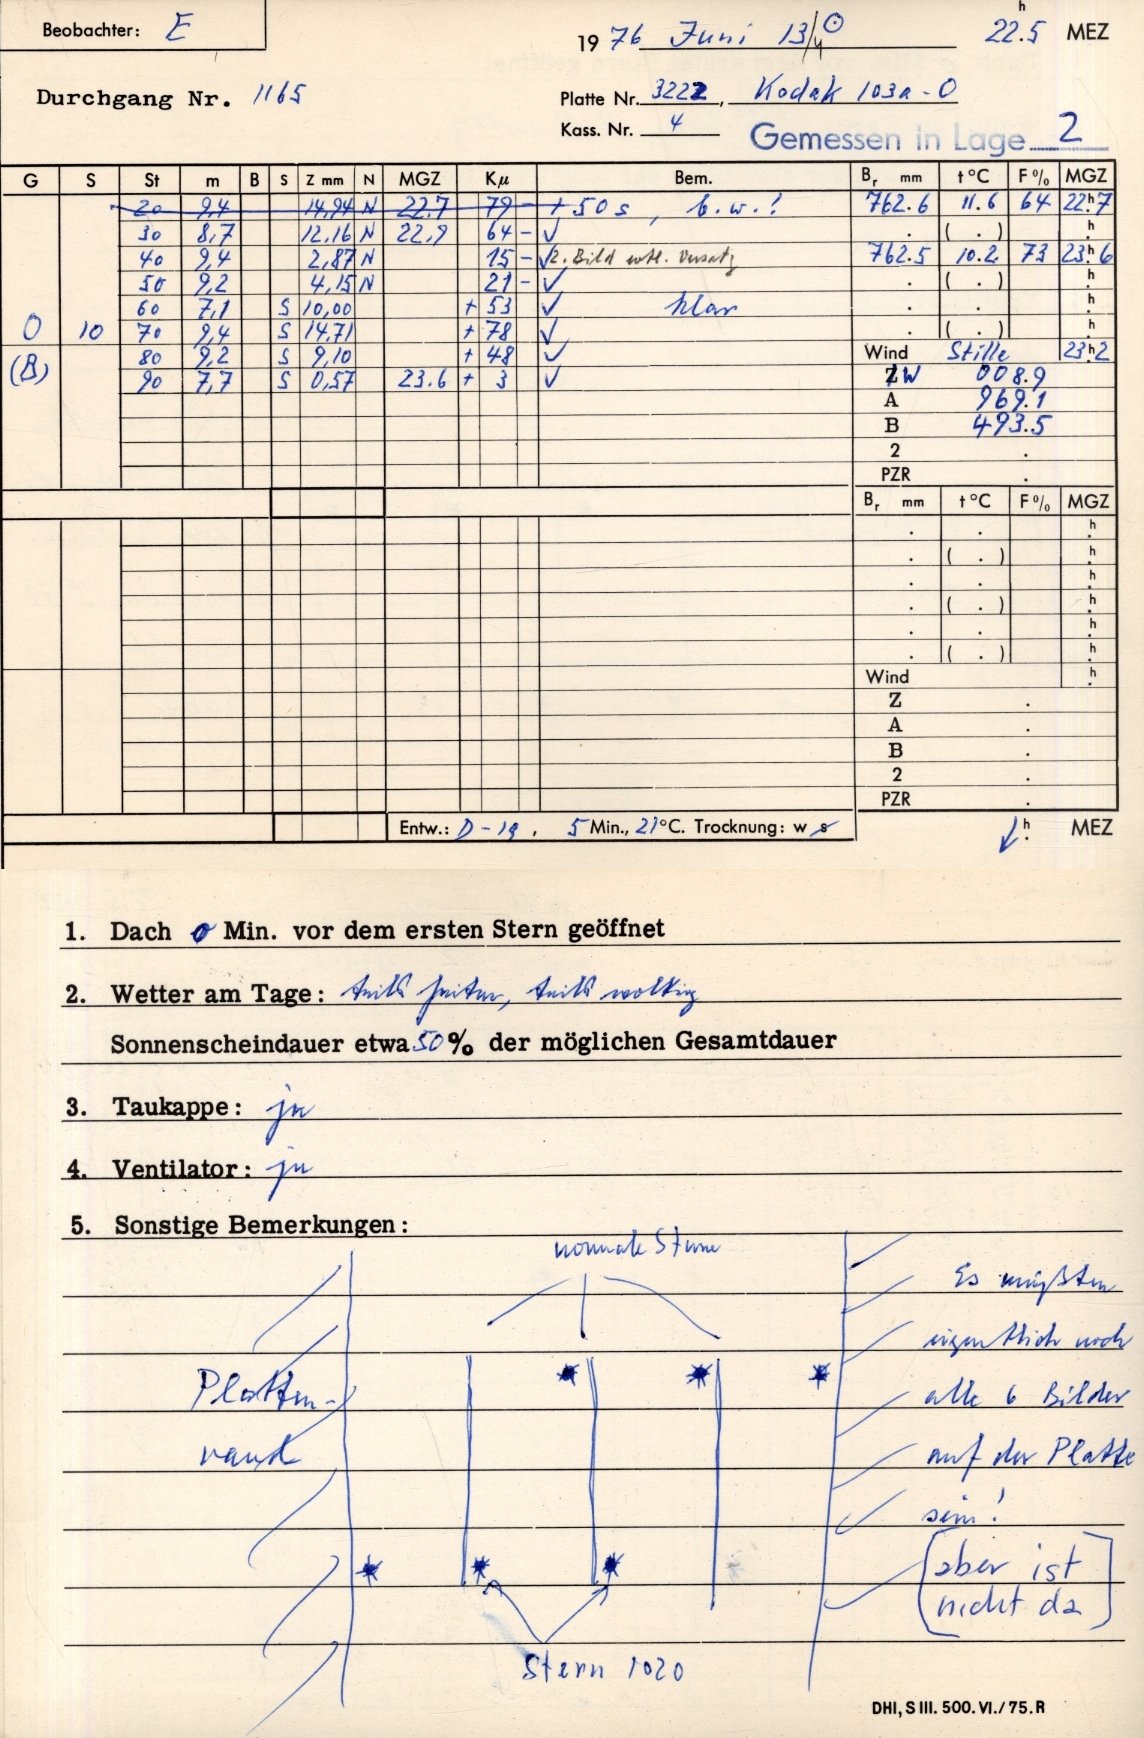 Beobachter: E
1976 Juni 13/14 ☉ 22.5 h MEZ
Durchgang Nr. 1165
Platte Nr. 3222, Kodak 103a-O
Kass. Nr. 4
Gemessen in Lage 2
G S St m B S Z mm N MGZ Kμ Bem. Br mm t °C F % MGZ
20 9,4 14,94 N 22.7 79 - + 50 s, b.w.! 762.6 11.6 64 22h7
30 8,7 12,16 N 22,9 64 - ✓ . ( . ) h
40 9,4 2,87 N 15 - ✓ 2. Bild wtl. Versatz 762.5 10.2 73 23h6
50 9,2 4,15 N 21 - ✓ . ( . ) h
60 7,1 S 10,00 + 53 ✓ klar . . h
0 10 70 9,4 S 14,71 + 78 ✓ . ( . ) h
(B) 80 9,2 S 9,10 + 48 ✓ Wind Stille 23h2
90 7,7 S 0,57 23.6 + 3 ✓ W 008.9
A 969.1
B 493.5
2 .
PZR .
Br mm t °C F % MGZ
. . h
. ( . ) h
. . h
. ( . ) h
. . h
. ( . ) h
Wind h
Z .
A .
B .
2 .
PZR .
Entw.: D-19, 5 Min., 21°C. Trocknung: w s
h MEZ
1. Dach 0 Min. vor dem ersten Stern geöffnet
2. Wetter am Tage: teils heiter, teils wolkig
Sonnenscheindauer etwa 50% der möglichen Gesamtdauer
3. Taukappe: ja
4. Ventilator: ja
5. Sonstige Bemerkungen:
normale Sterne
Es müßten
eigentlich noch
Platten-
alle 6 Bilder
rand
auf der Platte
sein!
[aber ist
nicht da]
Stern 1020
DHI, S III. 500. VI./75. R